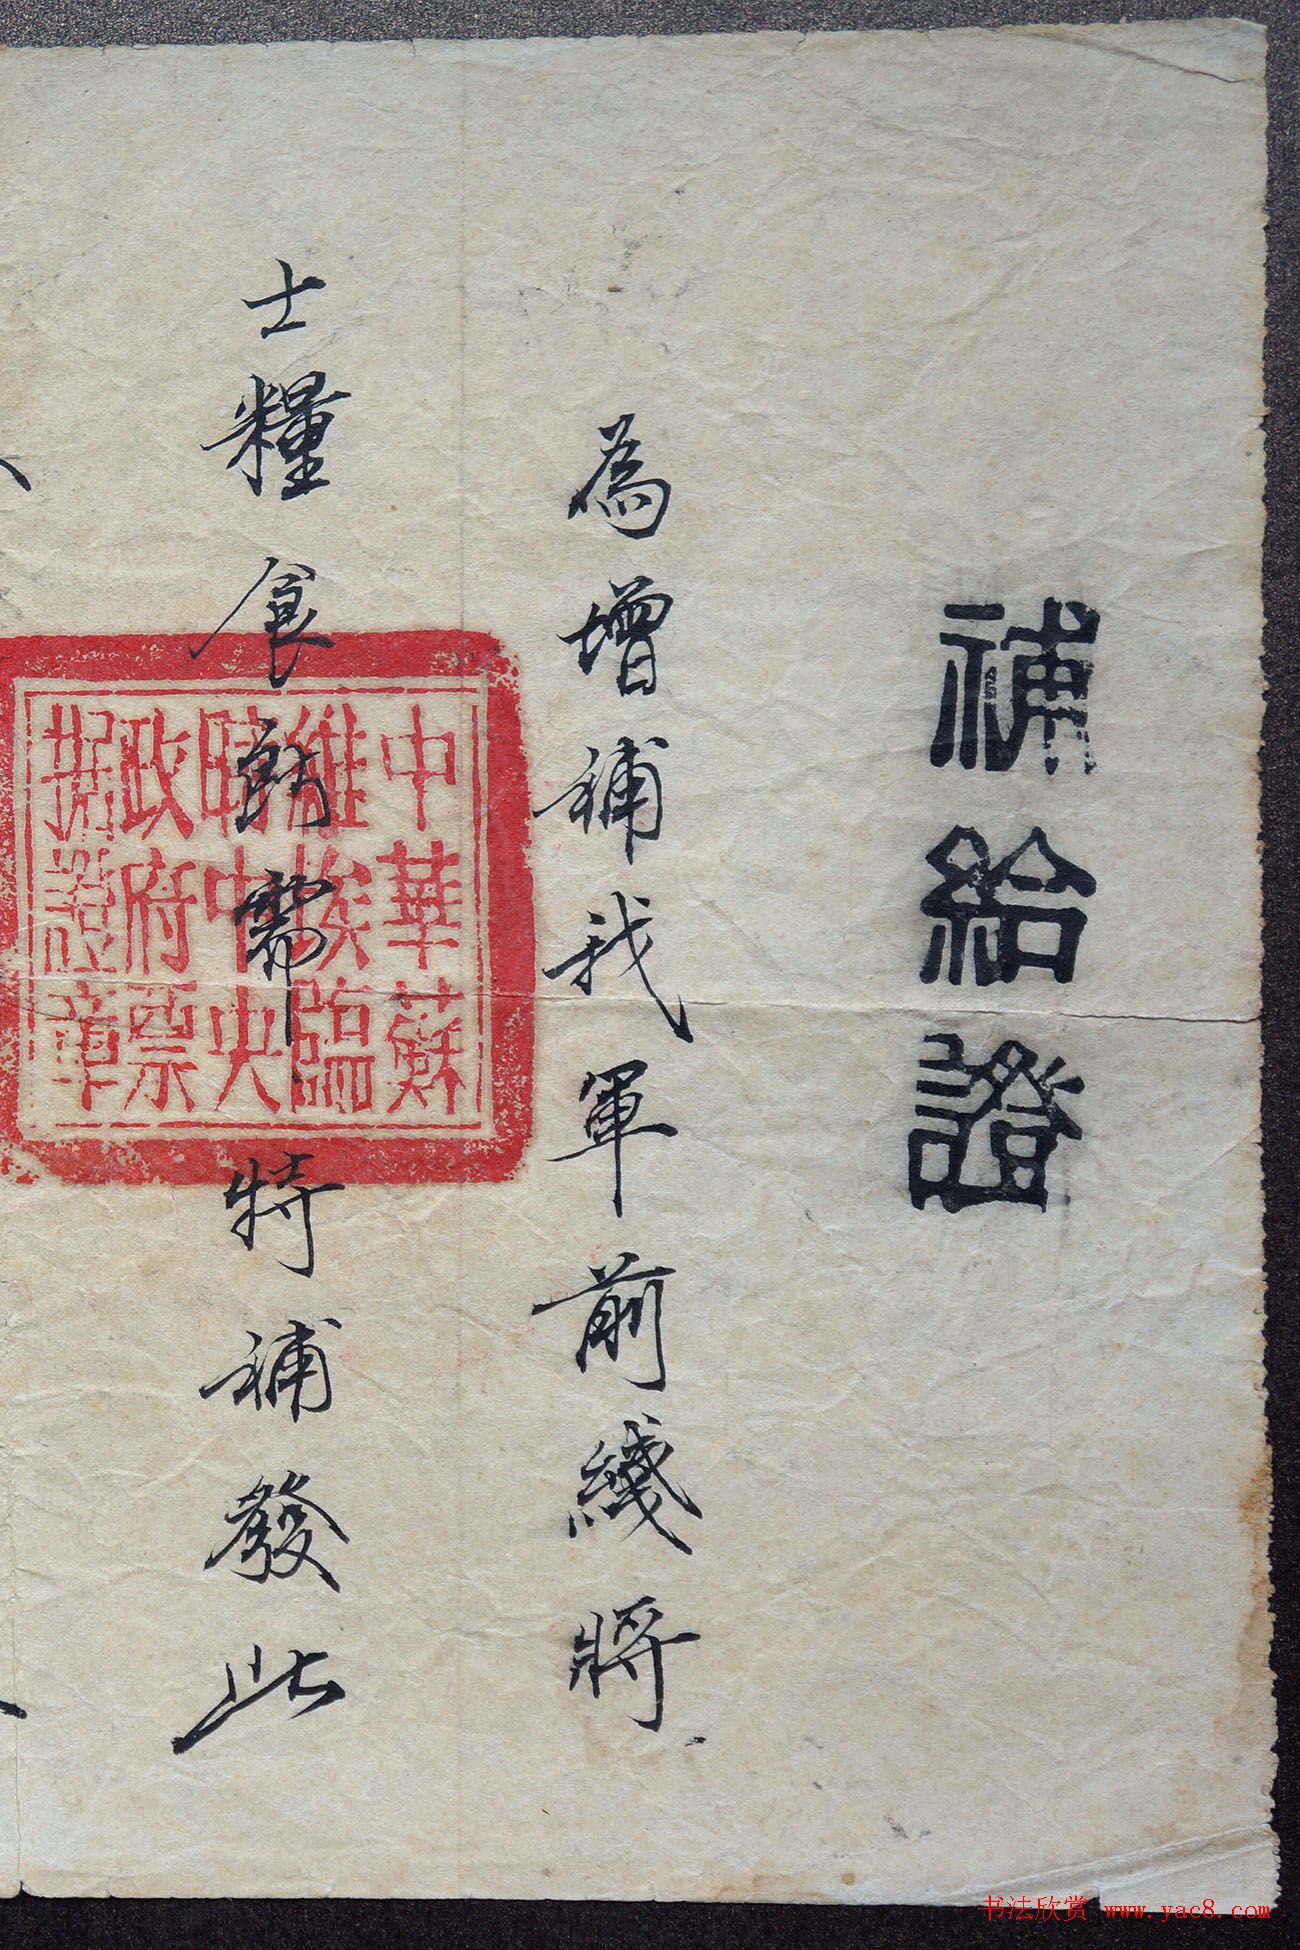 補給證
為增補我軍前綫將
士糧食所需特補發此
中華蘇
維埃臨
時中央
政府票
据證章
书法欣赏 www.yac8.com